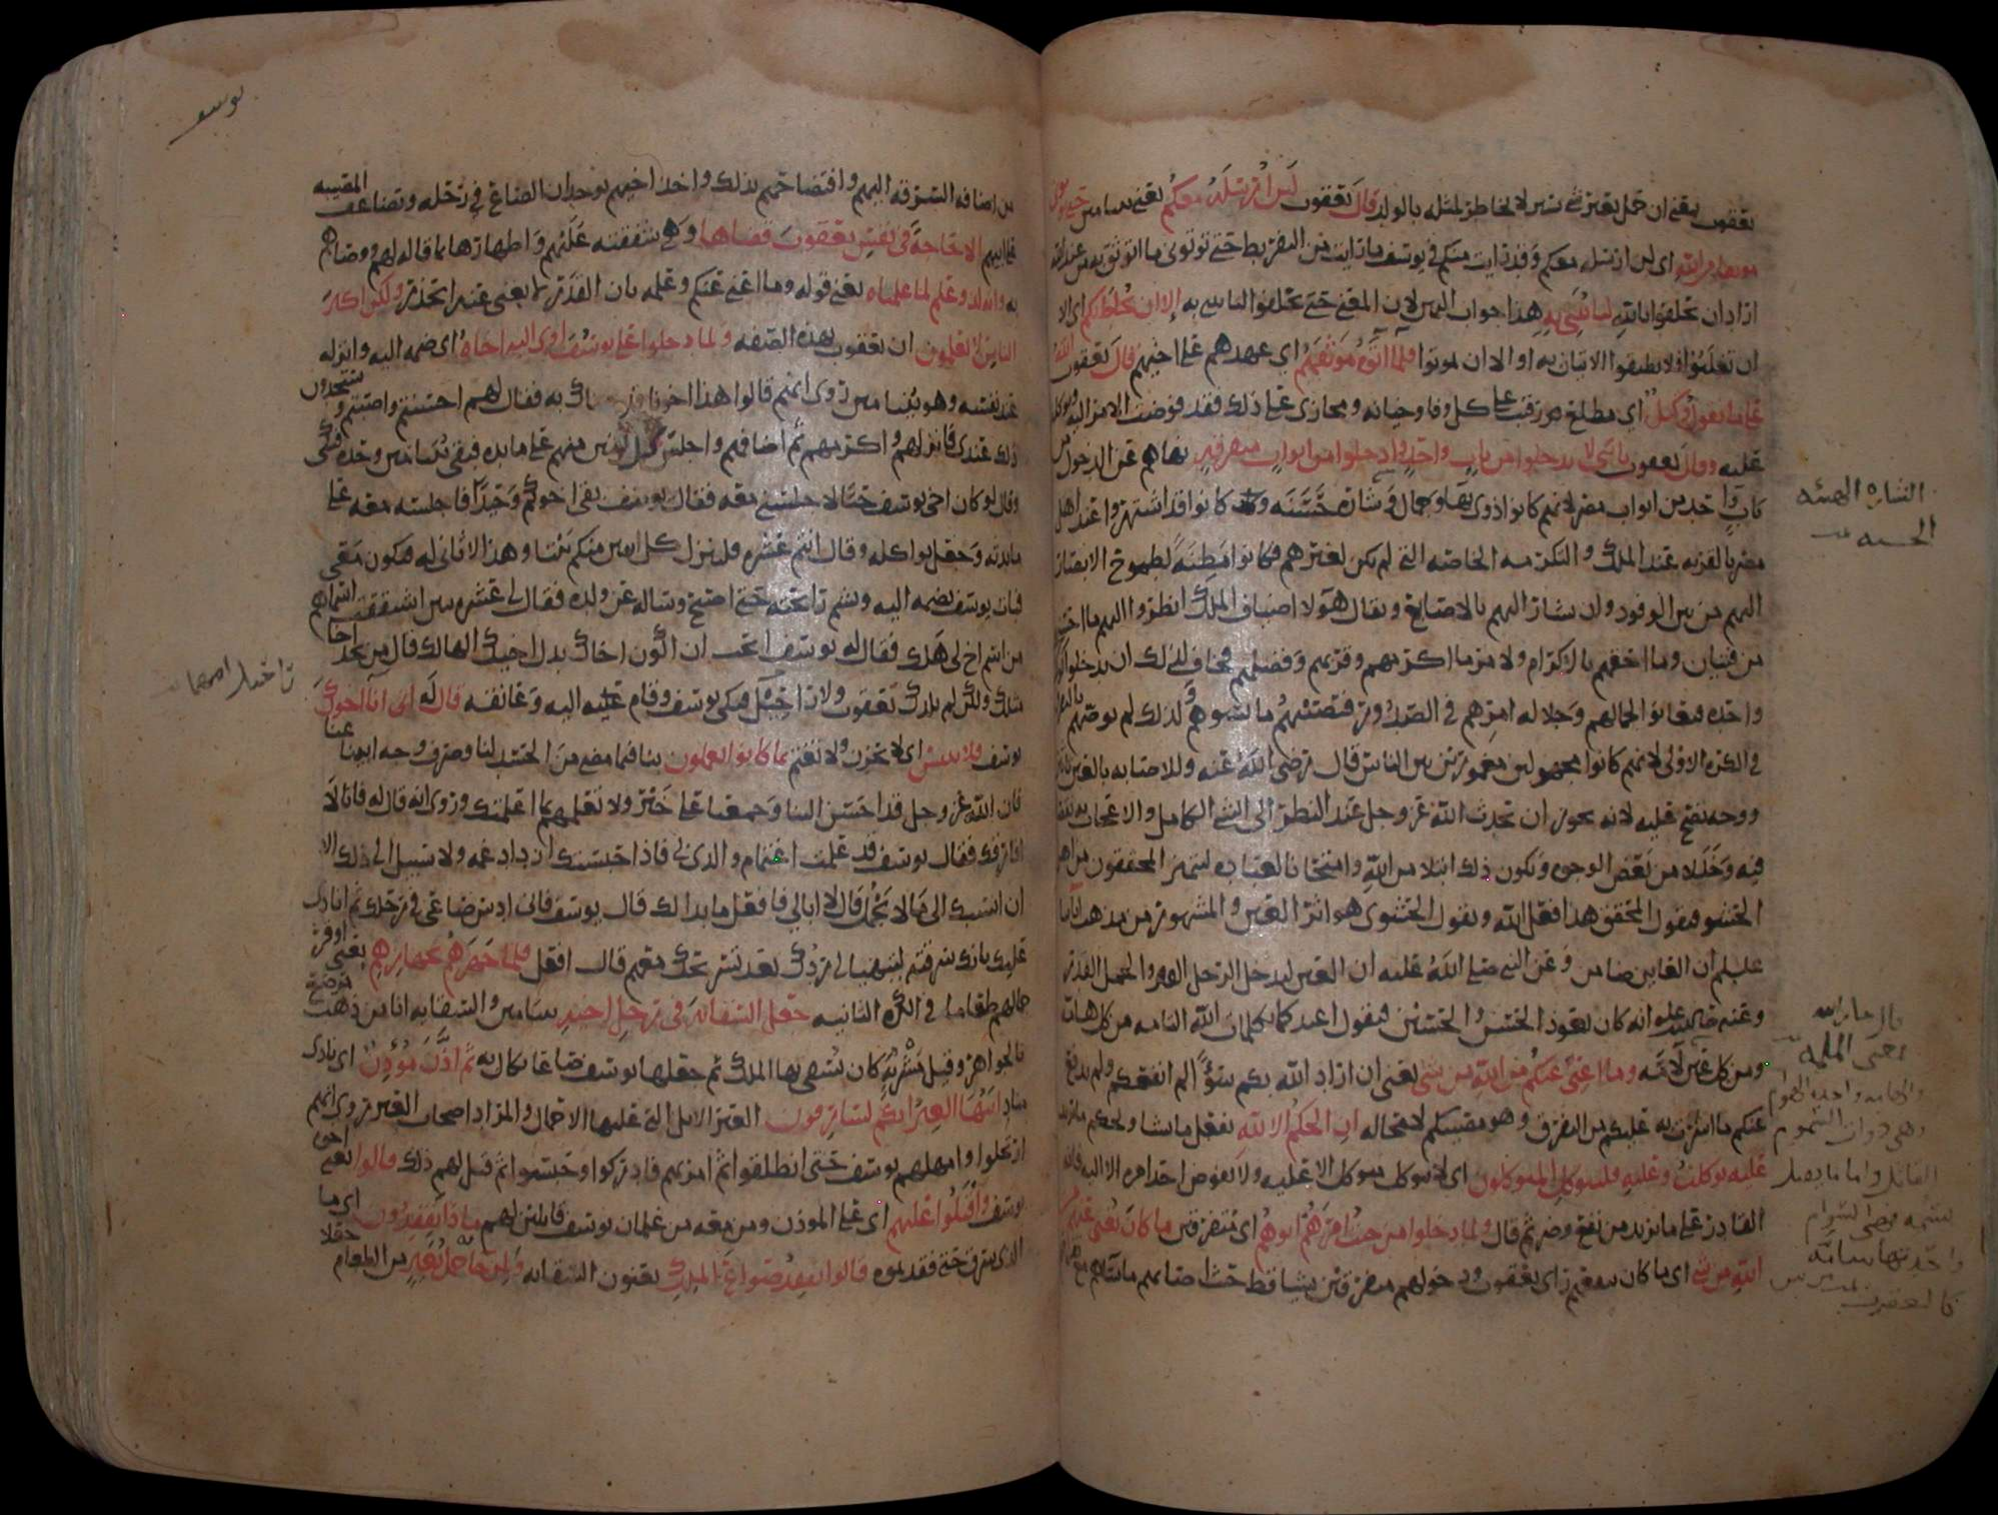 يعقوب يعني ان حمل بعير شي يسير لا يخاطر لمثله بالولد قال يعقوب لن ارسله معكم يعني بنيامين حتى تؤتون
موثقا من الله اي لن ارسله معكم وقد رايت منكم في يوسف ما رايت من التفريط حتى تؤتوني ما اتوثق به من عند الله
اراد ان تحلفوا بالله لتاتنني به هذا جواب اليمين لان المعنى حتى تحلفوا لتاتنني به الا ان يحاط بكم اي الا
ان تغلبوا فلا تطيقوا الاتيان به او الا ان تموتوا فلما اتوه موثقهم اي عهدهم على اخيهم قال يعقوب الله
على ما نقول وكيل اي مطلع رقيب على كل وفا وخيانه ومجازي على ذلك فقد فوضت الامر اليه وتوكلت
عليه وقال يعقوب يا بني لا تدخلوا من باب واحد وادخلوا من ابواب متفرقة نهاهم عن الدخول من
باب واحد من ابواب مصر لانهم كانوا ذوي بها وجمال وشارة حسنه كانوا قد اشتهروا عند اهل
مصر بالقربه عند الملك والتكرمه الخاصه التي لم تكن لغيرهم فكانوا مظنة لطموح الابصار
اليهم من بين الوفود وان يشار اليهم بالاصابع ويقال هولا اضياف الملك انظروا اليهم ما احسنهم
من فتيان وما احقهم بالاكرام ولامر ما اكرمهم وقربهم وفضلهم فخاف لذلك ان يدخلوا كوكبة
واحده فيعانوا لجمالهم وجلاله امرهم في الصدور فتصيبهم ما يسوهم ولذلك لم يوصهم بالتفرق
في الكره الاولى لانهم كانوا مجهولين مغمورين بين الناس قال رضي الله عنه وللاصابه بالعين
ووجه يصح عليه لانه يجوز ان يحدث الله عز وجل عند النظر الى الشي الكامل والاعجاب به نقصا
فيه وخللا من بعض الوجوه ويكون ذلك ابتلا من الله وامتحانا لعباده ليتميز المحققون من اهل
الحشو فيقول المحقق هذا فعل الله ويقول الحشوي هو اثر العين والمشهور من مذهب
ان العاين ضامن وعن النبي صلى الله عليه ان العين لتدخل الرجل القبر والجمل القدر
وعنه صلى الله عليه انه كان يعوذ الحسن والحسين فيقول اعيذكما بكلمات الله التامه من كل هامة
ومن كل عين لامه وما اغني عنكم من الله من شي يعني ان اراد الله بكم سوا لم ينفعكم ولم يدفع
عنكم ما اشرت به عليكم من التفرق وهو مصيبكم لا محاله ان الحكم الا لله يفعل ما يشا ويحكم ما يريد
عليه توكلت وعليه فليتوكل المتوكلون اي لا يتوكل متوكل الا عليه ولا يفوض احد امره الا اليه فانه
القادر على ما يريد من نفع وضر ثم قال ولما دخلوا من حيث امرهم ابوهم اي متفرقين ما كان يغني عنهم من
الله من شي اي ما كان يغنيهم راي يعقوب ودخولهم متفرقين شيا قط حيث اصابهم ما ساهم مع
الشاره الهيئه
الحسنه
قال جار الله
من اضافه السرقه اليهم وافتضاحهم بذلك واخذ اخيهم بوجدان الصواع في رحله وتضاعف المصيبه
على ابيهم الا حاجة في نفس يعقوب قضاها وهي شفقته عليهم واظهارها بما قاله لهم ووصاهم
به وانه لذو علم لما علمناه يعني قوله وما اغني عنكم وعلمه بان القدر لا يغني عنه الحذر ولكن اكثر
الناس لا يعلمون ان يعقوب بهذه الصفه ولما دخلوا على يوسف اوى اليه اخاه اي ضمه اليه وانزله
عند نفسه وهو بنيامين روي انهم قالوا هذا اخونا قد جيناك به فقال لهم احسنتم واصبتم وستجدون
ذلك عندي فانزلهم واكرمهم ثم اضافهم واجلس كل اثنين منهم على مايده فبقي بنيامين وحده فبكى
وقال لو كان اخي يوسف حيا لاجلسني معه فقال يوسف بقي اخوكم وحيدا فاجلسه معه على
مايدته وجعل يواكله وقال انتم عشره فلينزل كل اثنين منكم بيتا وهذا لا ثاني له فيكون معي
فبات يوسف يضمه اليه ويشم رايحته حتى اصبح وساله عن ولده فقال لي عشره بنين اشتققت اسماهم
من اسم اخ لي هلك فقال له يوسف اتحب ان اكون اخاك بدل اخيك الهالك قال من يجد اخا
مثلك ولكن لم يلدك يعقوب ولا راحيل فبكى يوسف وقام اليه وعانقه قال له اني انا اخوك
يوسف فلا تبتئس اي لا تحزن ولا تغتم بما كانوا يعملون بنا فيما مضى من الحسد لنا وصرف وجه ابينا عنا
فان الله عز وجل قد احسن الينا وجمعنا على خير ولا تعلمهم بما اعلمتك وروي انه قال له فانا لا
افارقك فقال يوسف قد علمت اغتمام والدي لي فاذا حبستك ازداد غمه ولا سبيل الى ذلك الا
ان انسبك الى ما لا يجمل قال لا ابالي فافعل ما بدا لك قال يوسف فاني ادس صاعي في رحلك ثم انادي
عليك بانك سرقته ليتهيا لي ردك بعد تسريحك معهم قال افعل فلما جهزهم بجهازهم يعني اوفر
جمالهم طعاما في الكره الثانيه جعل السقاية في رحل اخيه بنيامين والسقايه انا من ذهب مرصع
بالجواهر وقيل مشربة كان يسقى بها الملك ثم جعلها يوسف صاعا يكال به ثم اذن مؤذن اي نادى
مناد ايتها العير انكم لسارقون العير الابل التي عليها الاحمال والمراد اصحاب العير روي انهم
ارتحلوا وامهلهم يوسف حتى انطلقوا ثم امر بهم فادركوا وحبسوا ثم قيل لهم ذلك قالوا يعني اخوة
يوسف واقبلوا عليهم اي على الموذن ومن معه من غلمان يوسف قايلين لهم ماذا تفقدون اي ما
الذي سرق حتى فقدتموه قالوا نفقد صواع الملك يعنون السقايه ولمن جا به حمل بعير من الطعام جعلا
يوسف
راحيل اسم امهما